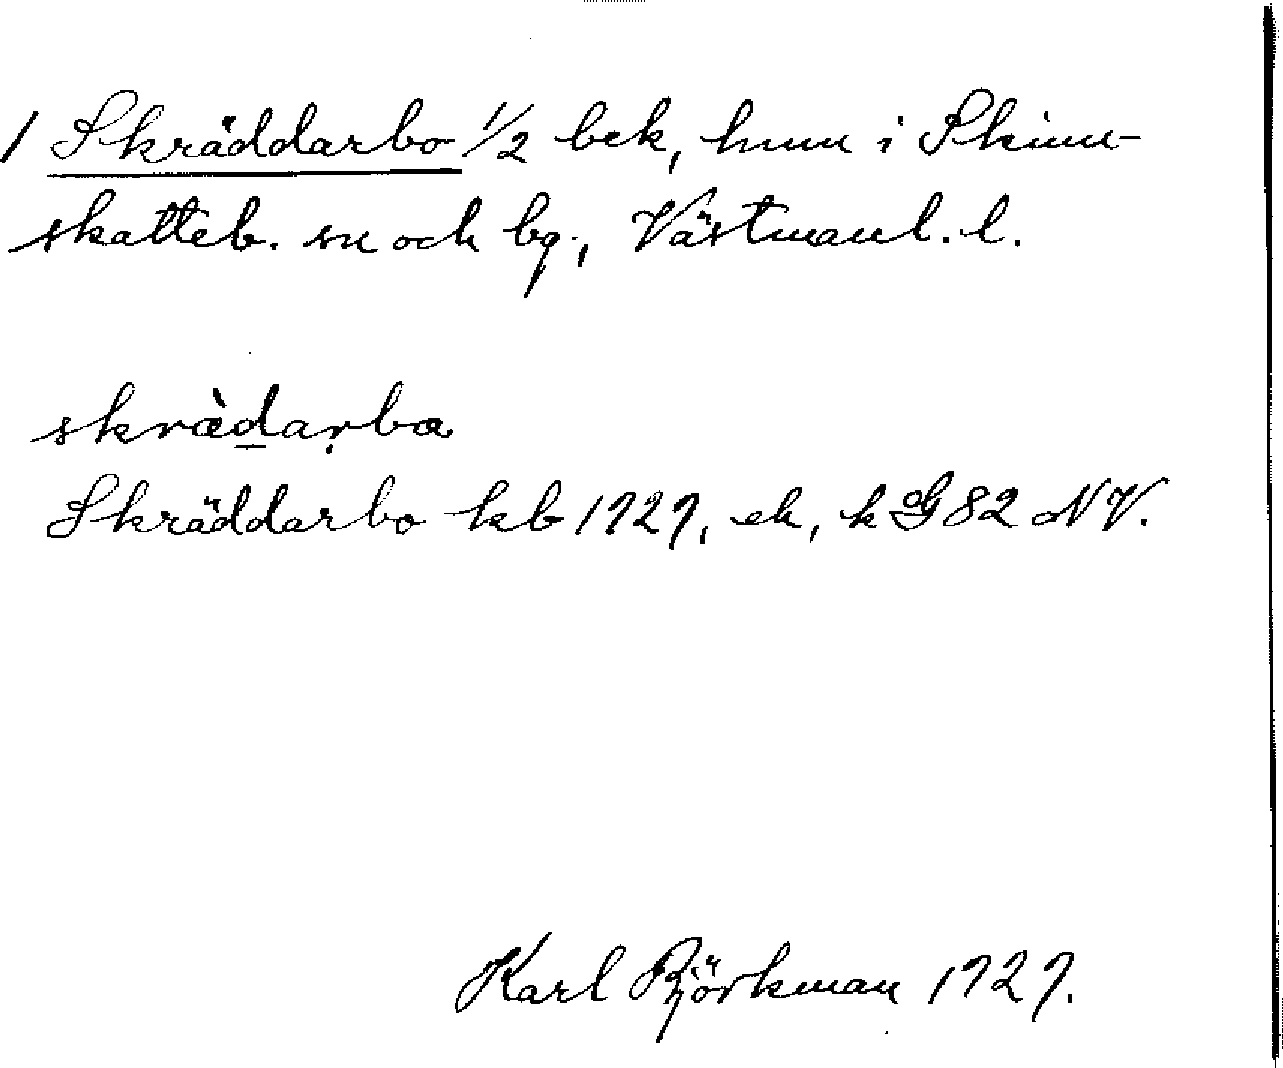 1 Skräddarbo 1/2 bek, hmn i Skinn-
skatteb. sn och bg., Västmanl. l.
skrædarba
Skräddarbo kb 1929, ek, k G 82 NV.
Karl Björkman 1929.